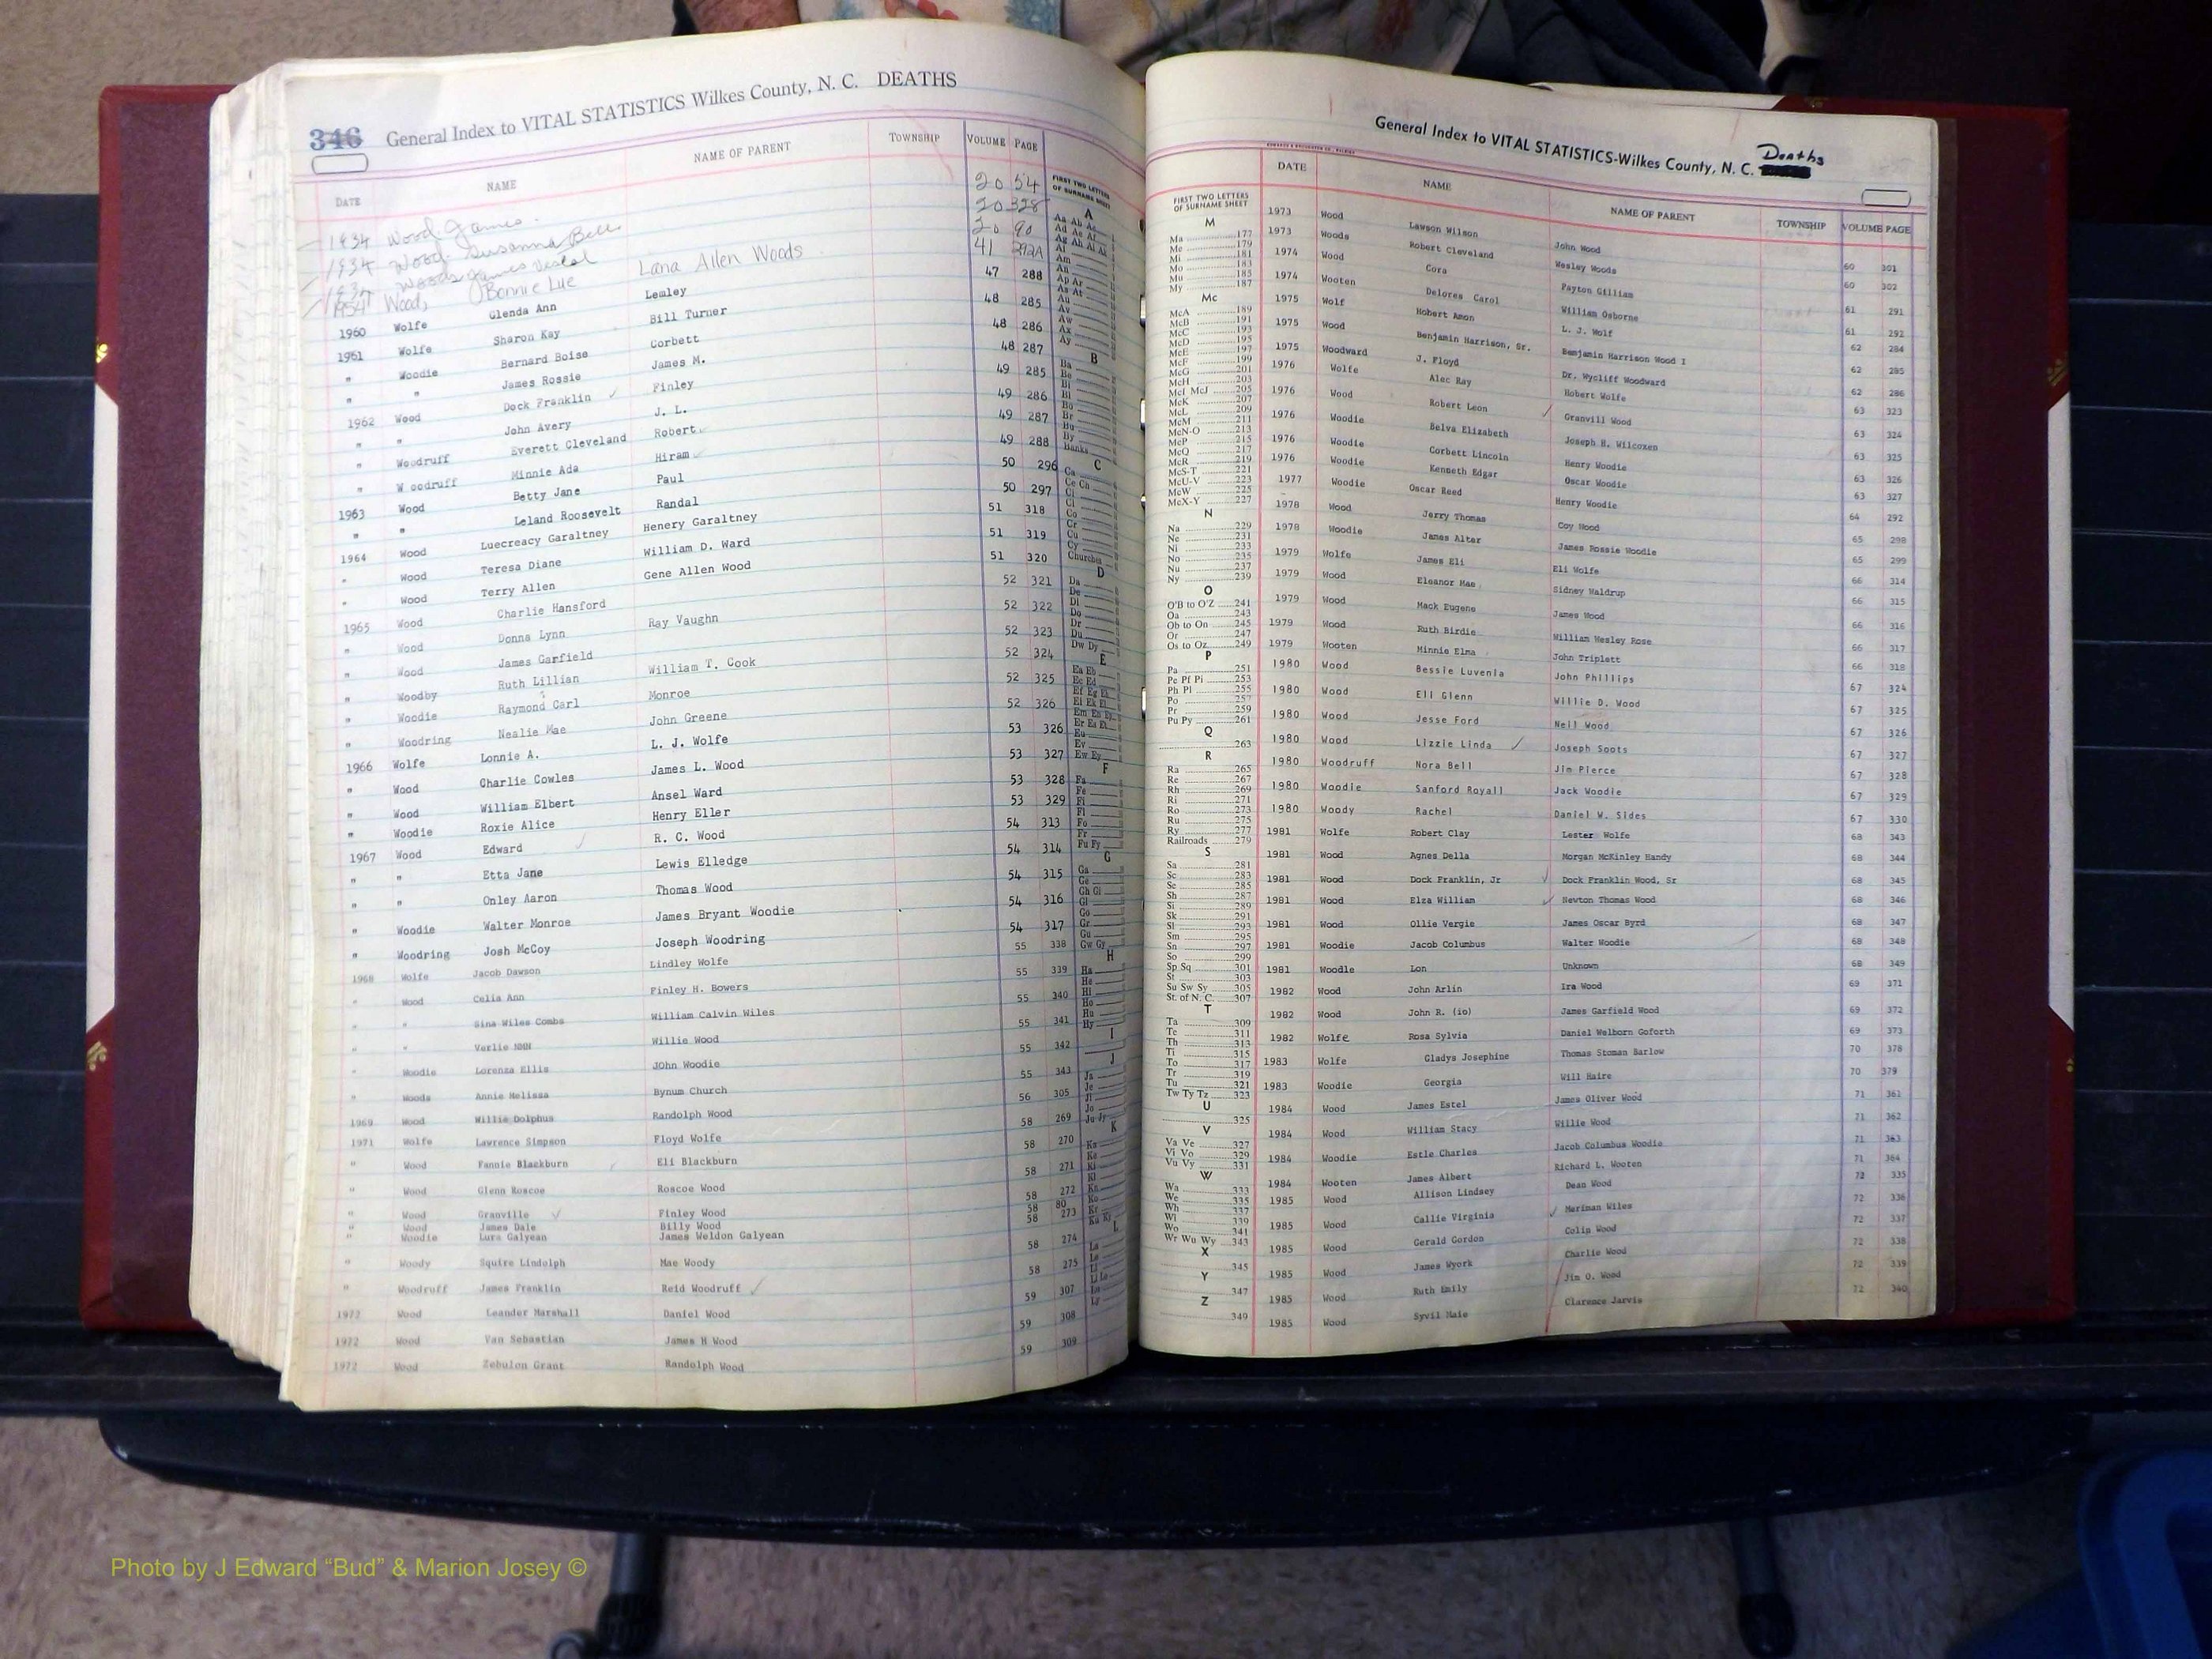 346 General Index to VITAL STATISTICS Wilkes County, N. C. DEATHS
DATE NAME NAME OF PARENT TOWNSHIP VOLUME PAGE
1934 Wood James 20 54
1934 Wood Susanna Bell 20 328
Woods James Vestal 20 90
1954 Wood, Bonnie Lue Lana Allen Woods 41 292A
1960 Wolfe Glenda Ann Lemley 47 288
1961 Wolfe Sharon Kay Bill Turner 48 285
" Woodie Bernard Boise Corbett 48 286
" " James Rossie James M. 48 287
1962 Wood Dock Franklin ✓ Finley 49 285
" " John Avery J. L. 49 286
" Woodruff Everett Cleveland Robert 49 287
" W oodruff Minnie Ada Hiram 49 288
1963 Wood Betty Jane Paul 50 296
" " Leland Roosevelt Randal 50 297
1964 Wood Luecreacy Garaltney Henery Garaltney 51 318
" Wood Teresa Diane William D. Ward 51 319
" Wood Terry Allen Gene Allen Wood 51 320
1965 Wood Charlie Hansford 52 321
" Wood Donna Lynn Ray Vaughn 52 322
" Wood James Garfield 52 323
" Woodby Ruth Lillian William T. Cook 52 324
" Woodie Raymond Carl Monroe 52 325
" Woodring Nealie Mae John Greene 52 326
1966 Wolfe Lonnie A. L. J. Wolfe 53 326
" Wood Charlie Cowles James L. Wood 53 327
" Wood William Elbert Ansel Ward 53 328
" Woodie Roxie Alice Henry Eller 53 329
1967 Wood Edward R. C. Wood 54 313
" " Etta Jane Lewis Elledge 54 314
" " Onley Aaron Thomas Wood 54 315
" Woodie Walter Monroe James Bryant Woodie 54 316
" Woodring Josh McCoy Joseph Woodring 54 317
1968 Wolfe Jacob Dawson Lindley Wolfe 55 338
" Wood Celia Ann Finley H. Bowers 55 339
" " Sina Wiles Combs William Calvin Wiles 55 340
" " Verlie NMN Willie Wood 55 341
" Woodie Lorenza Ellis JOhn Woodie 55 342
" Woods Annie Melissa Bynum Church 55 343
1969 Wood Willie Dolphus Randolph Wood 56 305
1971 Wolfe Lawrence Simpson Floyd Wolfe 58 269
" Wood Fannie Blackburn Eli Blackburn 58 270
" Wood Glenn Roscoe Roscoe Wood 58 271
" Wood Granville ✓ Finley Wood 58 272
" Wood James Dale Billy Wood 58 80
" Woodie Lura Galyean James Weldon Galyean 58 273
" Woody Squire Lindolph Mae Woody 58 274
" Woodruff James Franklin Reid Woodruff ✓ 58 275
1972 Wood Leander Marshall Daniel Wood 59 307
1972 Wood Van Sebastian James H Wood 59 308
1972 Wood Zebulon Grant Randolph Wood 59 309
FIRST TWO LETTERS
OF SURNAME SHEET
A
Aa Ab Ac
Ad Ae Af
Ag Ah Ai Aj Ak
Al
Am
An
Ap Ar
As At
Au
Av
Aw
Ax
Ay
B
Ba
Be
Bi
Bl
Bo
Br
Bu
By
Banks
C
Ca
Ce Ch
Ci
Cl
Co
Cr
Cu
Cy
Churches
D
Da
De
Di
Do
Dr
Du
Dw Dy
E
Ea Eb
Ec Ed
Ef Eg Eh
Ei Ek El
Em En Ep
Er Es Et
Eu
Ev
Ew Ey
F
Fa
Fe
Fi
Fl
Fo
Fr
Fu Fy
G
Ga
Ge
Gh Gi
Gl
Go
Gr
Gu
Gw Gy
H
Ha
He
Hi
Ho
Hu
Hy
I
J
Ja
Je
Ji
Jo
Ju Jy
K
Ka
Ke
Ki
Kl
Kn
Ko
Kr
Ku Ky
L
La
Le
Li
Ll Lo
Lu
Ly
General Index to VITAL STATISTICS-Wilkes County, N. C. Deaths
DATE NAME NAME OF PARENT TOWNSHIP VOLUME PAGE
FIRST TWO LETTERS
OF SURNAME SHEET
M
Ma 177
Me 179
Mi 181
Mo 183
Mu 185
My 187
Mc
McA 189
McB 191
McC 193
McD 195
McE 197
McF 199
McG 201
McH 203
McI McJ 205
McK 207
McL 209
McM 211
McN-O 213
McP 215
McQ 217
McR 219
McS-T 221
McU-V 223
McW 225
McX-Y 227
N
Na 229
Ne 231
Ni 233
No 235
Nu 237
Ny 239
O
O'B to O'Z 241
Oa 243
Ob to On 245
Or 247
Os to Oz 249
P
Pa 251
Pe Pf Pi 253
Ph Pl 255
Po 257
Pr 259
Pu Py 261
Q
263
R
Ra 265
Re 267
Rh 269
Ri 271
Ro 273
Ru 275
Ry 277
Railroads 279
S
Sa 281
Sc 283
Se 285
Sh 287
Si 289
Sk 291
Sl 293
Sm 295
Sn 297
So 299
Sp Sq 301
St 303
Su Sw Sy 305
St. of N. C. 307
T
Ta 309
Te 311
Th 313
Ti 315
To 317
Tr 319
Tu 321
Tw Ty Tz 323
U
325
V
Va Ve 327
Vi Vo 329
Vu Vy 331
W
Wa 333
We 335
Wh 337
Wi 339
Wo 341
Wr Wu Wy 343
X
345
Y
347
Z
349
1973 Wood Lawson Wilson John Wood 60 301
1973 Woods Robert Cleveland Wesley Woods 60 302
1974 Wood Cora Payton Gilliam 61 291
1974 Wooten Delores Carol William Osborne 61 292
1975 Wolf Hobert Amon L. J. Wolf 62 284
1975 Wood Benjamin Harrison, Sr. Benjamin Harrison Wood I 62 285
1975 Woodward J. Floyd Dr. Wycliff Woodward 62 286
1976 Wolfe Alec Ray Hobert Wolfe 63 323
1976 Wood Robert Leon Granvill Wood 63 324
1976 Woodie Belva Elizabeth Joseph H. Wilcoxen 63 325
1976 Woodie Corbett Lincoln Henry Woodie 63 326
1976 Woodie Kenneth Edgar Oscar Woodie 63 327
1977 Woodie Oscar Reed Henry Woodie 64 292
1978 Wood Jerry Thomas Coy Wood 65 298
1978 Woodie James Alter James Rossie Woodie 65 299
1979 Wolfe James Eli Eli Wolfe 66 314
1979 Wood Eleanor Mae Sidney Waldrup 66 315
1979 Wood Mack Eugene James Wood 66 316
1979 Wood Ruth Birdie William Wesley Rose 66 317
1979 Wooten Minnie Elma John Triplett 66 318
1980 Wood Bessie Luvenia John Phillips 67 324
1980 Wood Ell Glenn Willie D. Wood 67 325
1980 Wood Jesse Ford Neil Wood 67 326
1980 Wood Lizzie Linda ✓ Joseph Soots 67 327
1980 Woodruff Nora Bell Jim Pierce 67 328
1980 Woodie Sanford Royall Jack Woodie 67 329
1980 Woody Rachel Daniel W. Sides 67 330
1981 Wolfe Robert Clay Lester Wolfe 68 343
1981 Wood Agnes Della Morgan McKinley Handy 68 344
1981 Wood Dock Franklin, Jr ✓ Dock Franklin Wood, Sr 68 345
1981 Wood Elza William ✓ Newton Thomas Wood 68 346
1981 Wood Ollie Vergie James Oscar Byrd 68 347
1981 Woodie Jacob Columbus Walter Woodie 68 348
1981 Woodle Lon Unknown 68 349
1982 Wood John Arlin Ira Wood 69 371
1982 Wood John R. (io) James Garfield Wood 69 372
1982 Wolfe Rosa Sylvia Daniel Welborn Goforth 69 373
1983 Wolfe Gladys Josephine Thomas Stoman Barlow 70 378
1983 Woodie Georgia Will Haire 70 379
1984 Wood James Estel James Oliver Wood 71 361
1984 Wood William Stacy Willie Wood 71 362
1984 Woodie Estle Charles Jacob Columbus Woodie 71 363
1984 Wooten James Albert Richard L. Wooten 71 364
1985 Wood Allison Lindsey Dean Wood 72 335
1985 Wood Callie Virginia ✓ Meriman Wiles 72 336
1985 Wood Gerald Gordon Colin Wood 72 337
1985 Wood James Wyork Charlie Wood 72 338
1985 Wood Ruth Emily Jim O. Wood 72 339
1985 Wood Syvil Maie Clarence Jarvis 72 340
Photo by J Edward “Bud” & Marion Josey ©